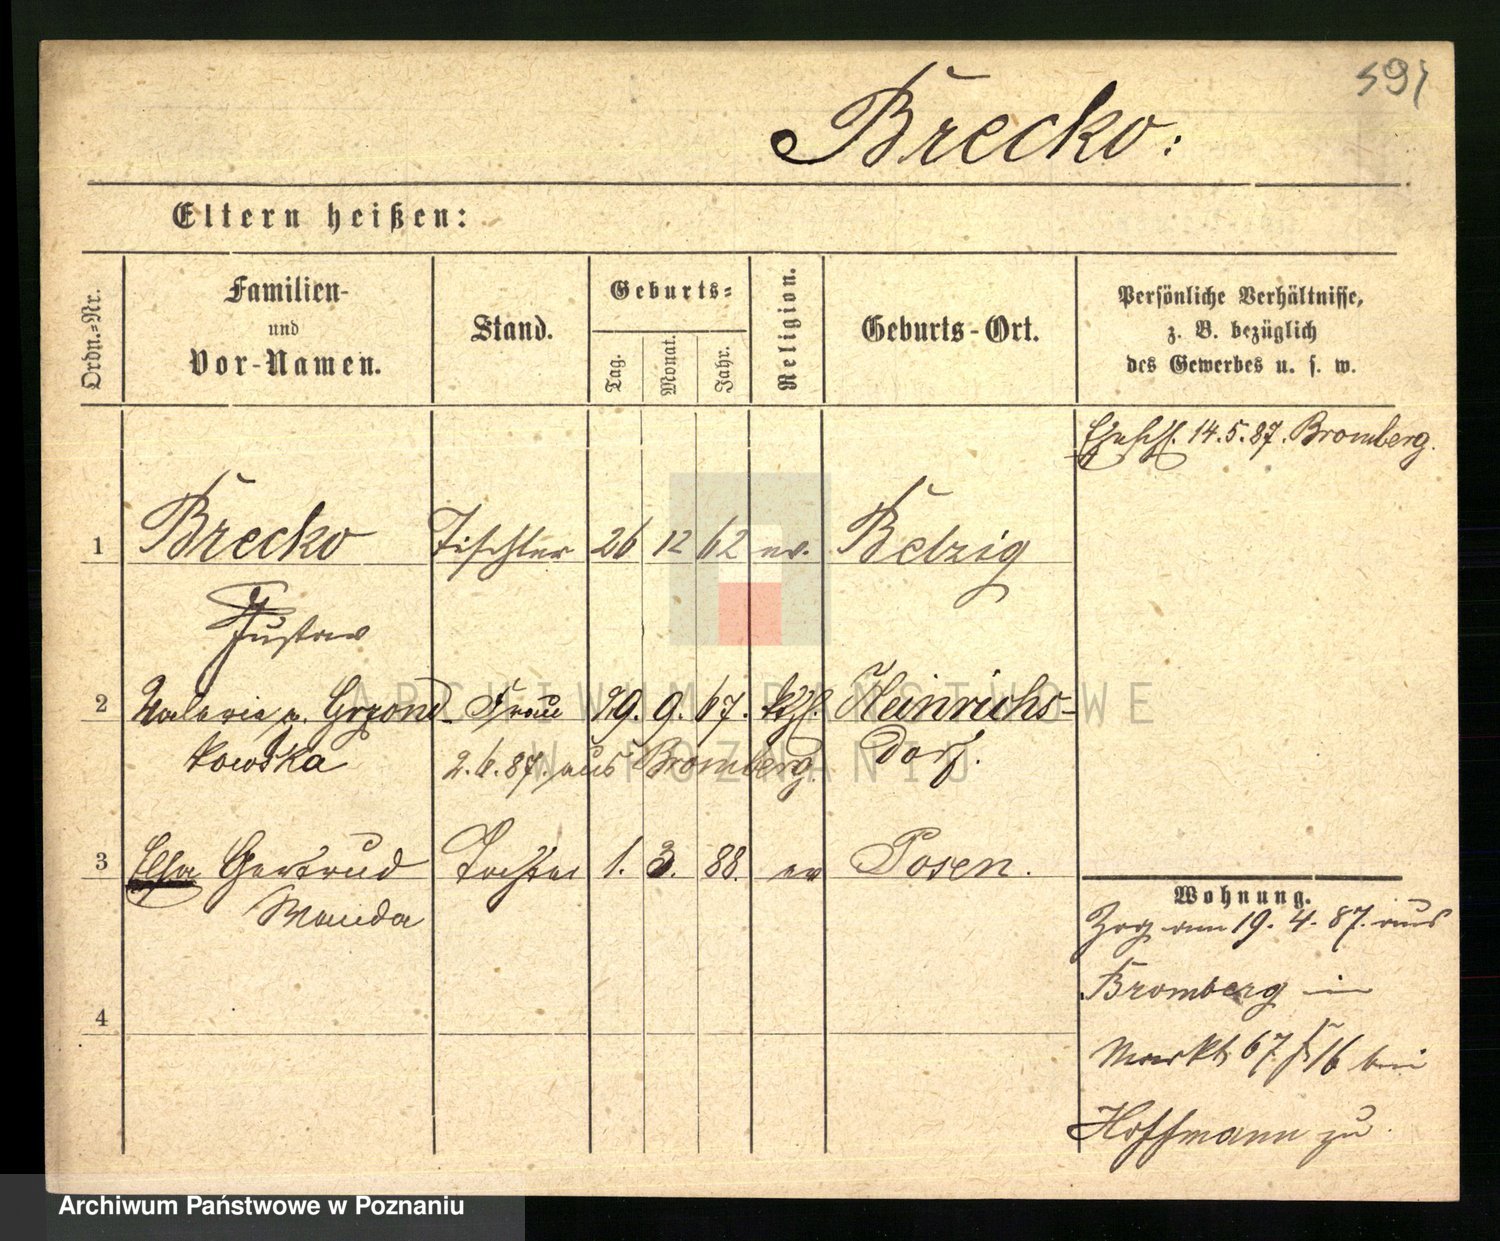 591
Brecko:
Eltern heißen:
Ordn.-Nr.
Familien-
und
Vor-Namen.
Stand.
Geburts-
Tag.
Monat.
Jahr.
Religion.
Geburts-Ort.
Persönliche Verhältnisse,
z. B. bezüglich
des Gewerbes u. s. w.
Eheschl. 14.5.87. Bromberg.
1 Brecko Tischler 26 12 62 ev. Belzig
Gustav
2 Valeria g. Grzond- Frau 29. 9. 67. kth. Heinrichs-
kowska 2.6.87. aus Bromberg. dorf.
3 Elsa Gertrud Tochter 1. 3. 88. ev Posen.
Wanda
Wohnung.
Zog am 19. 4. 87. aus
Bromberg in
4
Markt 67 16 bei
Hoffmann zu
ARCHIWUM PAŃSTWOWE
W POZNANIU
Archiwum Państwowe w Poznaniu